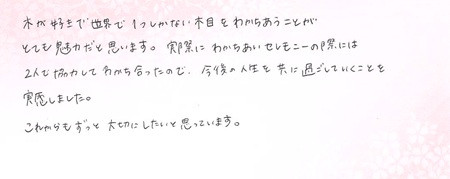 木が好きで世界で1つしかない木目をわかちあうことが
とても魅力だと思います。実際にわかちあいセレモニーの際には
2人で協力してわかち合ったので、今後の人生を共に過ごしていくことを
実感しました。
これからもずっと大切にしたいと思っています。